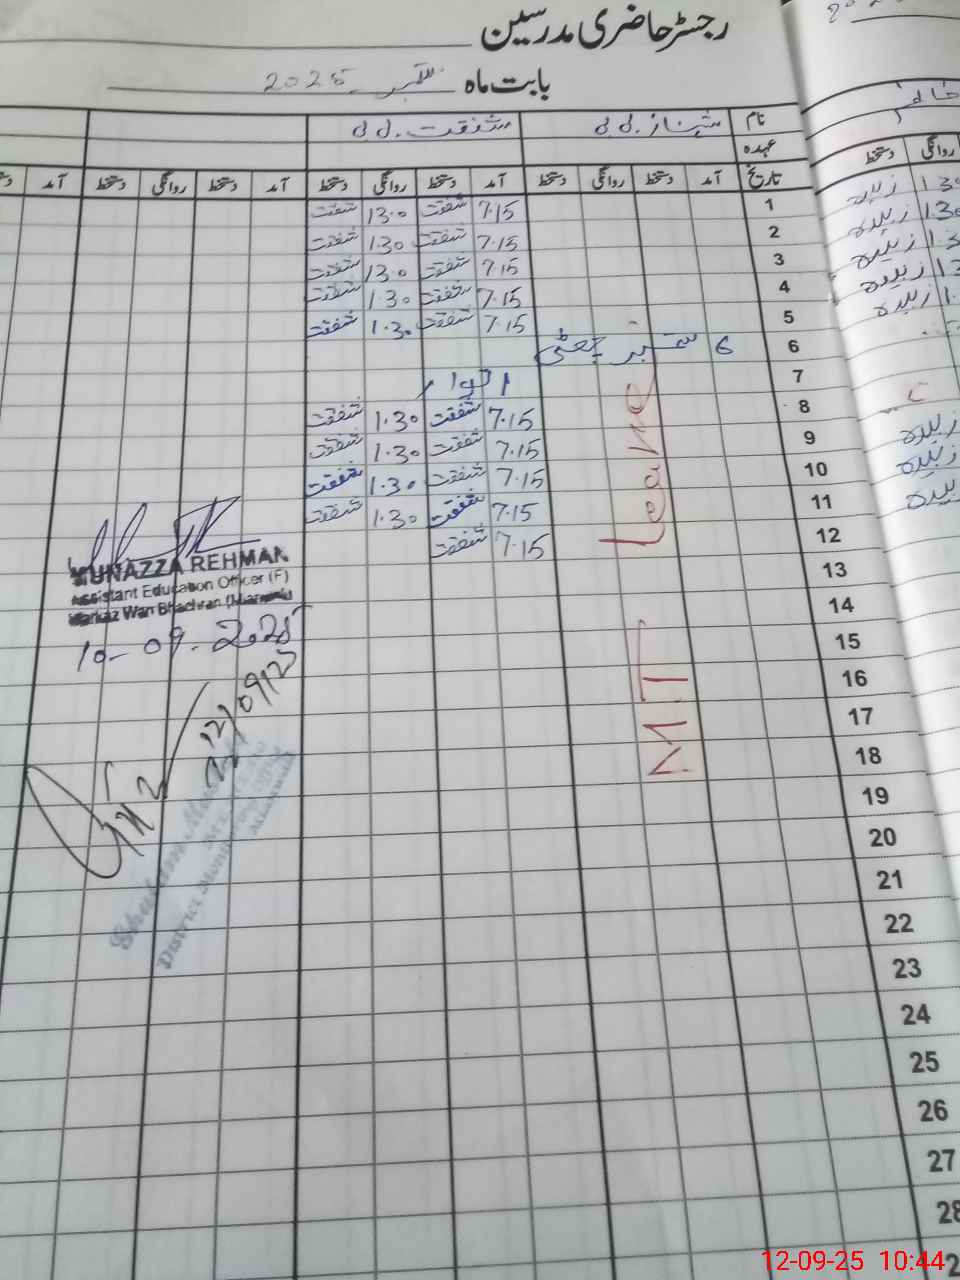 رجسٹر حاضری مدرسین
بابت ماہ ستمبر 2025
نام شہناز بی بی شفقت بی بی
عہدہ
تاریخ آمد دستخط روانگی دستخط آمد دستخط روانگی دستخط آمد دستخط روانگی دستخط آمد
1 7.15 شفقت 1.30 شفقت
2 7.15 شفقت 1.30 شفقت
3 7.15 شفقت 1.30 شفقت
4 7.15 شفقت 1.30 شفقت
5 7.15 شفقت 1.30 شفقت
6 6 ستمبر چھٹی
7 اتوار
8 7.15 شفقت 1.30 شفقت
9 7.15 شفقت 1.30 شفقت
10 7.15 شفقت 1.30 شفقت
11 7.15 شفقت 1.30 شفقت
12 7.15 شفقت
13
14
15
16
17
18
19
20
21
22
23
24
25
26
27
28
Leave
MT
MUNAZZA REHMAN
Assistant Education Officer (F)
Markaz Wan Bhachran (Mianwali)
10-09-2025
12/09/25
District
روانگی دستخط
1.30 زبیدہ
1.30 زبیدہ
زبیدہ
زبیدہ
زبیدہ
زبیدہ
زبیدہ
12-09-25 10:44